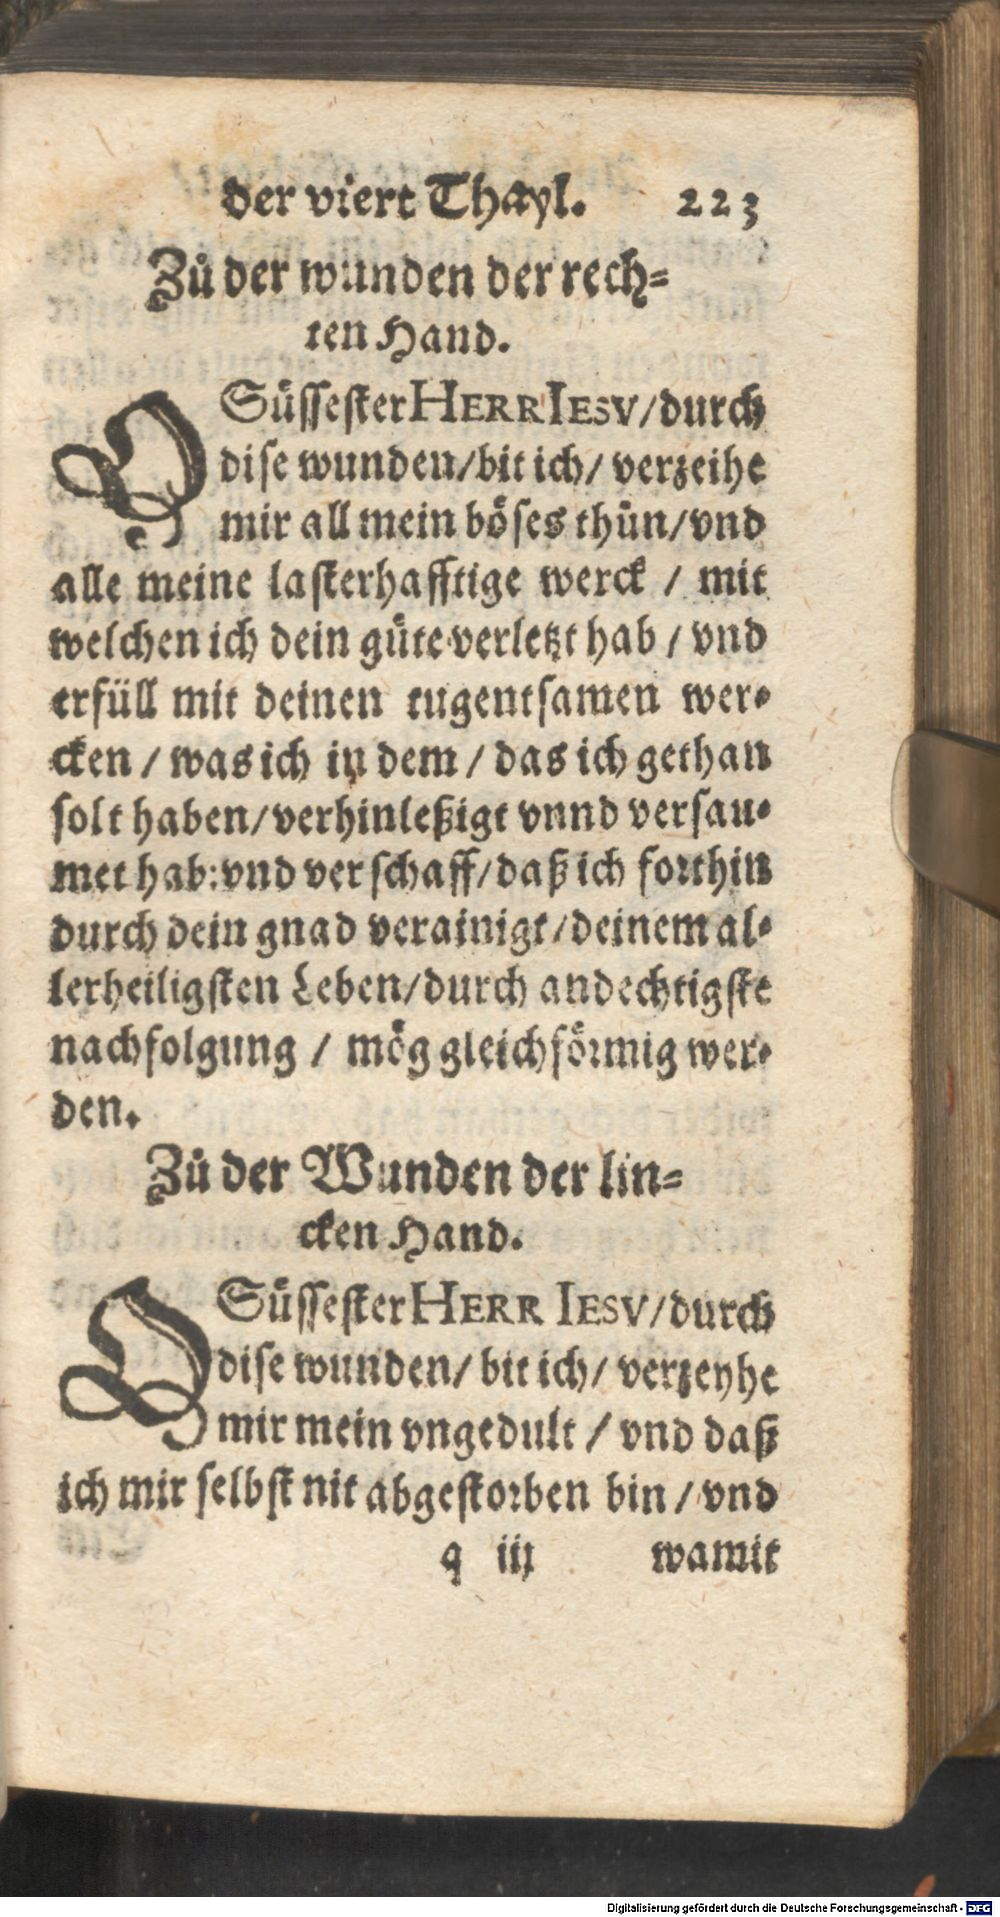 der viert Thayl. 223
Zů der wunden der rech-
ten Hand.
O Süssester HERR IESV/durch
dise wunden/bit ich/ verzeihe
mir all mein böses thůn/vnd
alle meine lasterhafftige werck / mit
welchen ich dein güte verletzt hab / vnd
erfüll mit deinen tugentsamen wer-
cken / was ich in dem / das ich gethan
solt haben/verhinleßigt vnnd versau-
met hab: vnd verschaff/daß ich forthin
durch dein gnad verainigt/deinem al-
lerheiligsten Leben/durch andechtigste
nachfolgung / mög gleichförmig wer-
den.
Zů der Wunden der lin-
cken Hand.
O Süssester HERR IESV/durch
dise wunden/ bit ich/ verzeyhe
mir mein vngedult / vnd daß
ich mir selbst nit abgestorben bin / vnd
q iij wamit
Digitalisierung gefördert durch die Deutsche Forschungsgemeinschaft - DFG